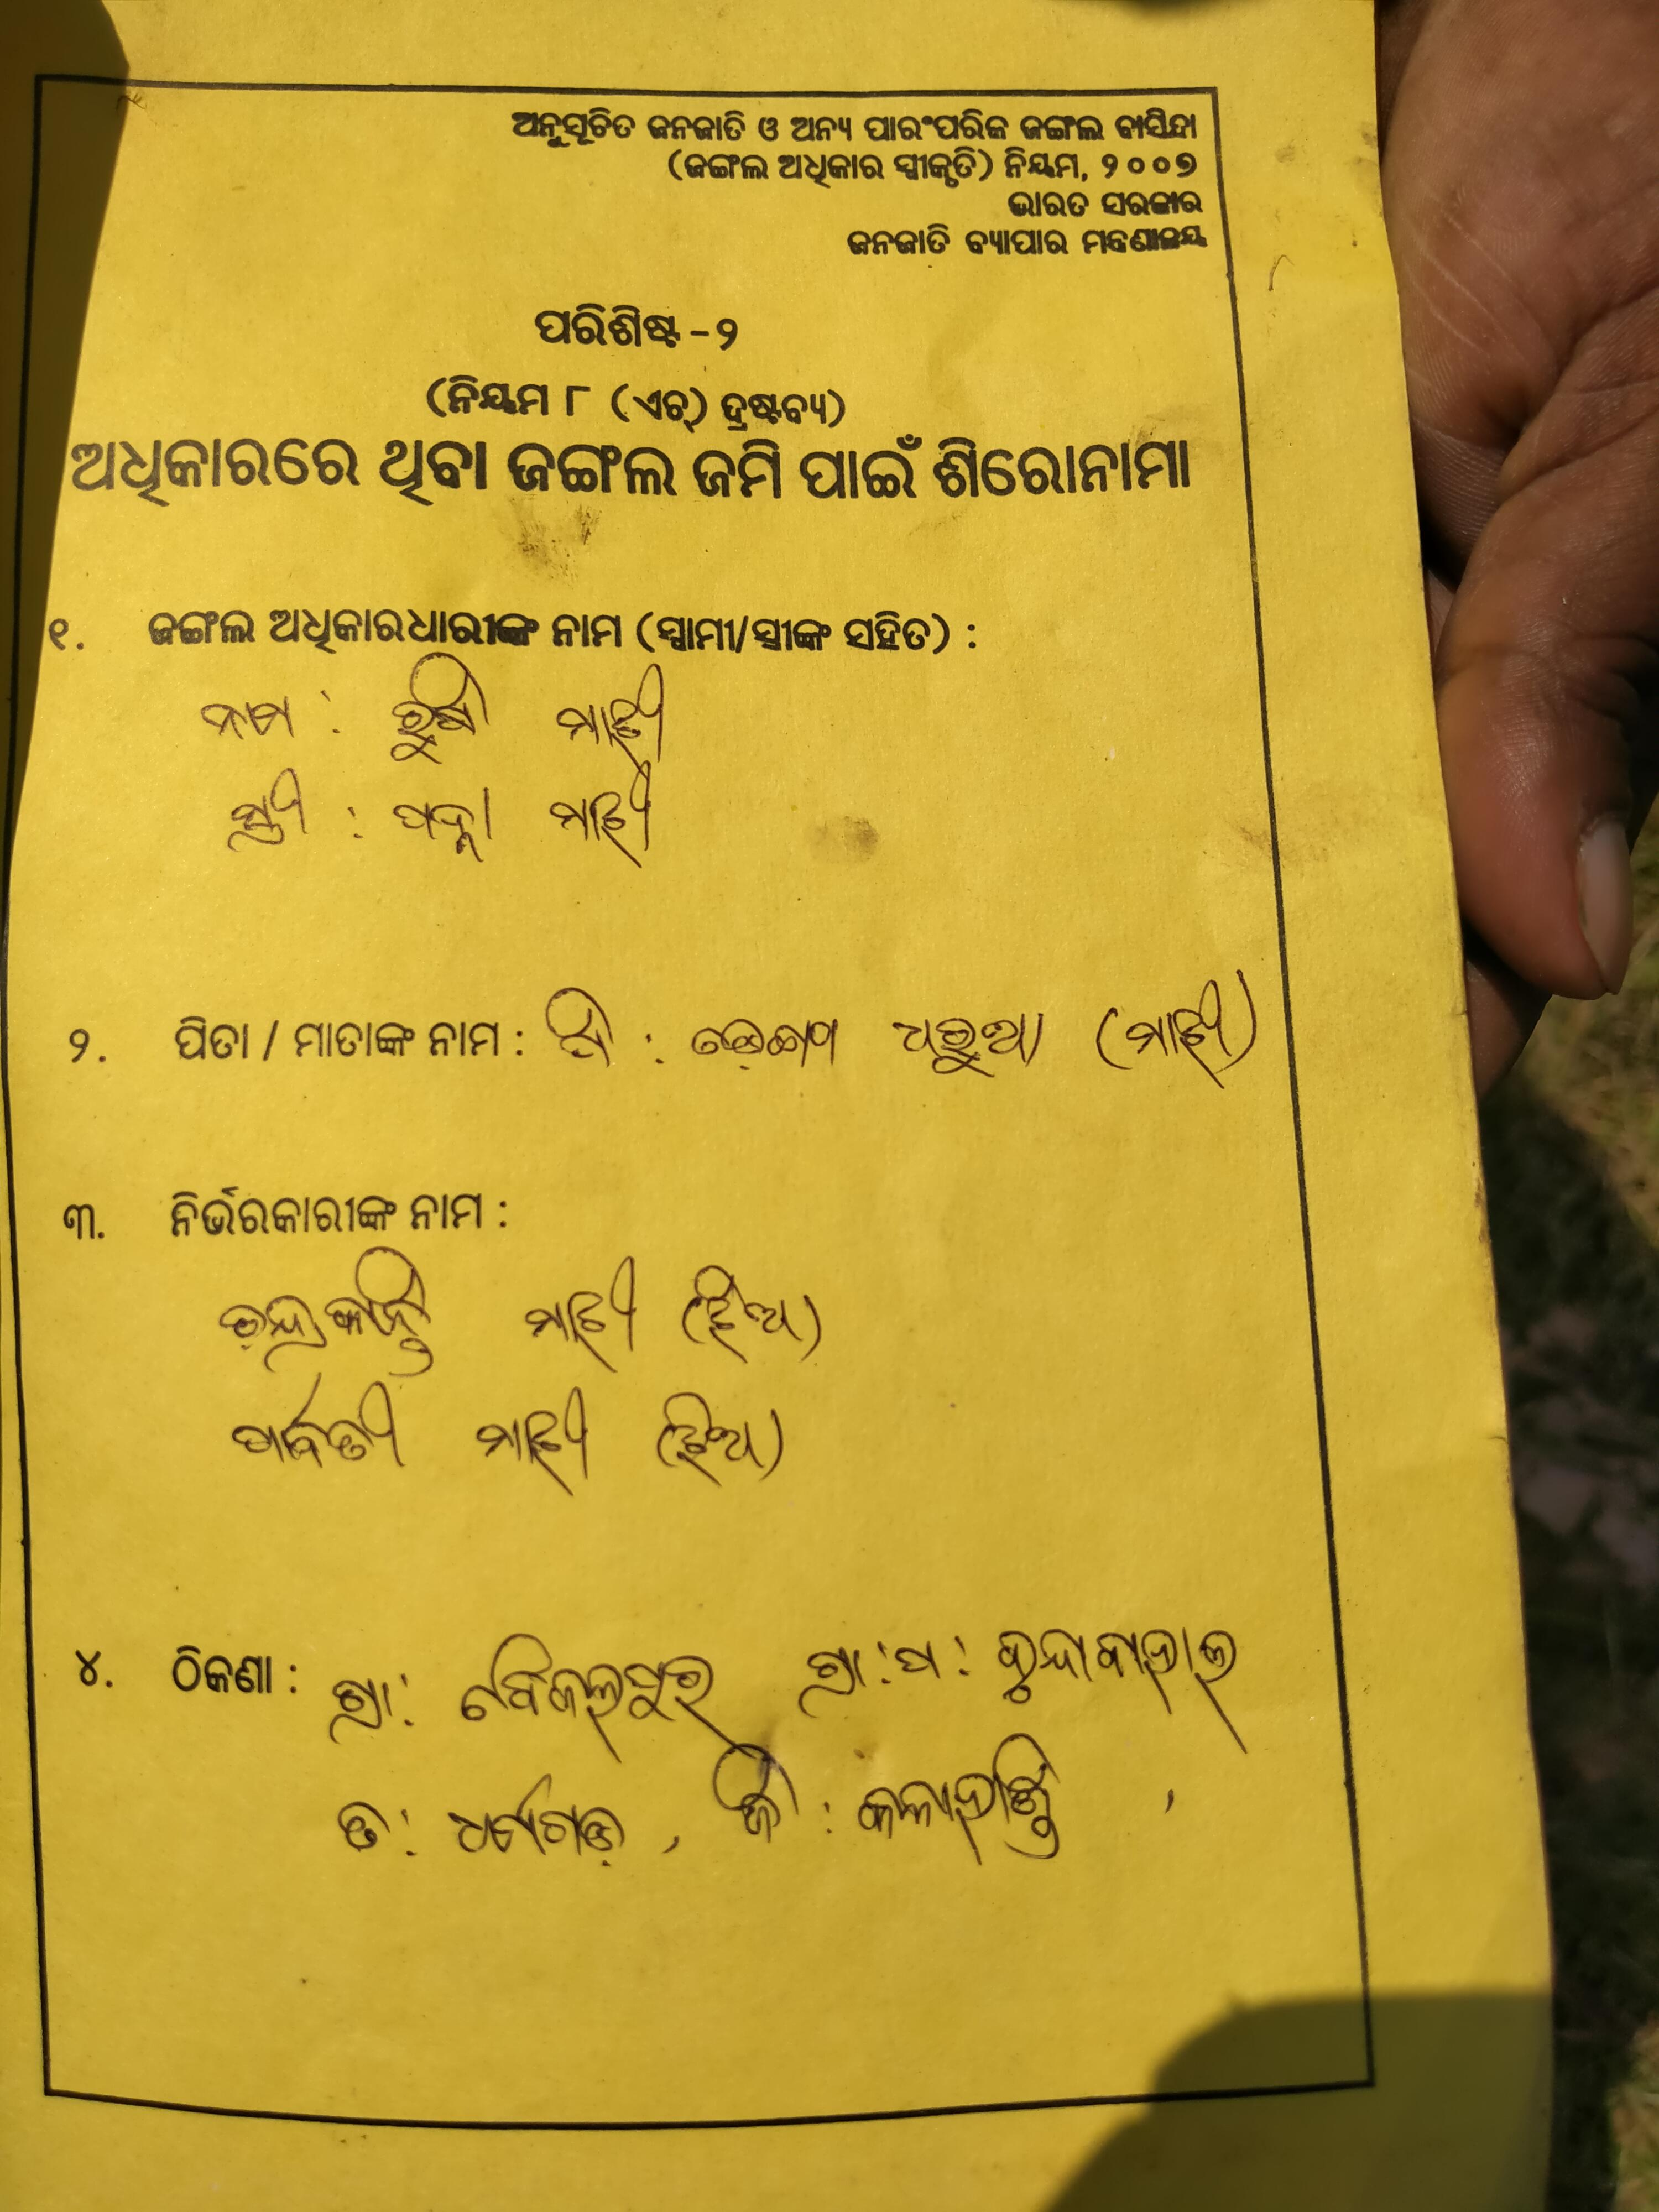 ଅନୁସୂଚିତ ଜନଜାତି ଓ ଅନ୍ୟ ପାରଂପରିକ ଜଙ୍ଗଲ ବାସିନ୍ଦା
(ଜଙ୍ଗଲ ଅଧିକାର ସ୍ୱୀକୃତି) ନିୟମ, ୨୦୦୭
ଭାରତ ସରକାର
ଜନଜାତି ବ୍ୟାପାର ମନ୍ତ୍ରଣାଳୟ
ପରିଶିଷ୍ଟ-୨
(ନିୟମ ୮ (ଏଚ୍) ଦ୍ରଷ୍ଟବ୍ୟ)
ଅଧିକାରରେ ଥିବା ଜଙ୍ଗଲ ଜମି ପାଇଁ ଶିରୋନାମା
୧. ଜଙ୍ଗଲ ଅଧିକାରଧାରୀଙ୍କ ନାମ (ସ୍ୱାମୀ/ସ୍ତ୍ରୀଙ୍କ ସହିତ) :
ନାମ : ରୁଷି ମାଝୀ
ସ୍ତ୍ରୀ : ମାଝୀ
୨. ପିତା / ମାତାଙ୍କ ନାମ : ପି : ଧରୁଆ (ମାଝୀ)
୩. ନିର୍ଭରକାରୀଙ୍କ ନାମ :
ମାଝୀ (ଝିଅ)
ପାର୍ବତୀ ମାଝୀ (ଝିଅ)
୪. ଠିକଣା : ଗ୍ରା: ଗ୍ରା:ପ:
ତ: ଧର୍ମଗଡ଼, ଜି : କଳାହାଣ୍ଡି ,